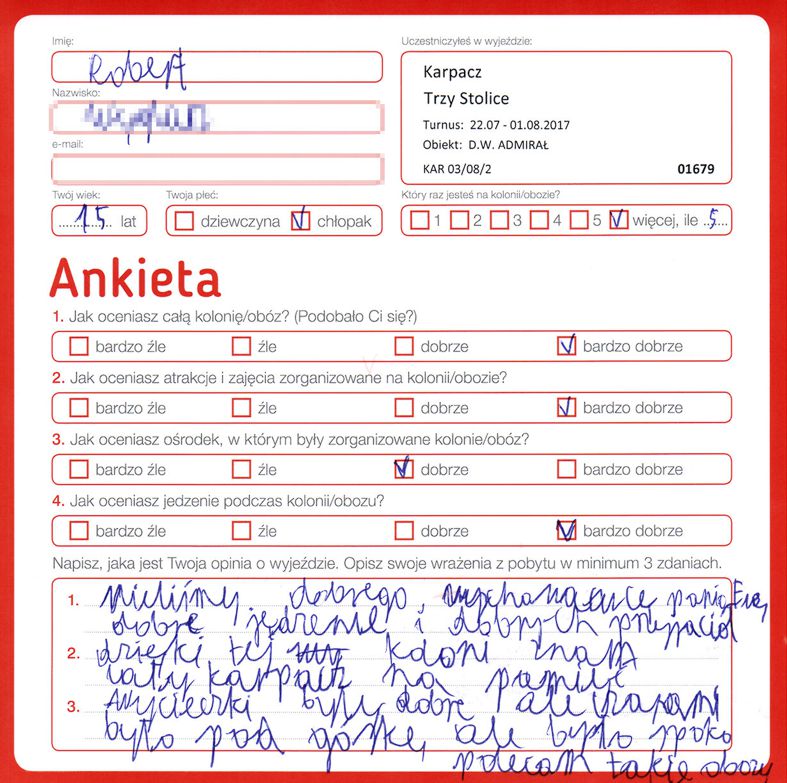 Imię:
Robert
Uczestniczyłeś w wyjeździe:
Karpacz
Trzy Stolice
Turnus: 22.07 - 01.08.2017
Obiekt: D.W. ADMIRAŁ
KAR 03/08/2 01679
Nazwisko:
e-mail:
Twój wiek:
15 lat
Twoja płeć:
dziewczyna chłopak
Który raz jesteś na kolonii/obozie?
1 2 3 4 5 więcej, ile 5
Ankieta
1. Jak oceniasz całą kolonię/obóz? (Podobało Ci się?)
bardzo źle źle dobrze bardzo dobrze
2. Jak oceniasz atrakcje i zajęcia zorganizowane na kolonii/obozie?
bardzo źle źle dobrze bardzo dobrze
3. Jak oceniasz ośrodek, w którym były zorganizowane kolonie/obóz?
bardzo źle źle dobrze bardzo dobrze
4. Jak oceniasz jedzenie podczas kolonii/obozu?
bardzo źle źle dobrze bardzo dobrze
Napisz, jaka jest Twoja opinia o wyjeździe. Opisz swoje wrażenia z pobytu w minimum 3 zdaniach.
1. Mieliśmy dobrego panią
dobre jedzenie i dobrych przyjaciół
2. dzięki tej koloni znam
cały karpacz na pamięć
3. wycieczki były dobre ale czasami
było pod górkę, ale było spoko
polecam takie obozy